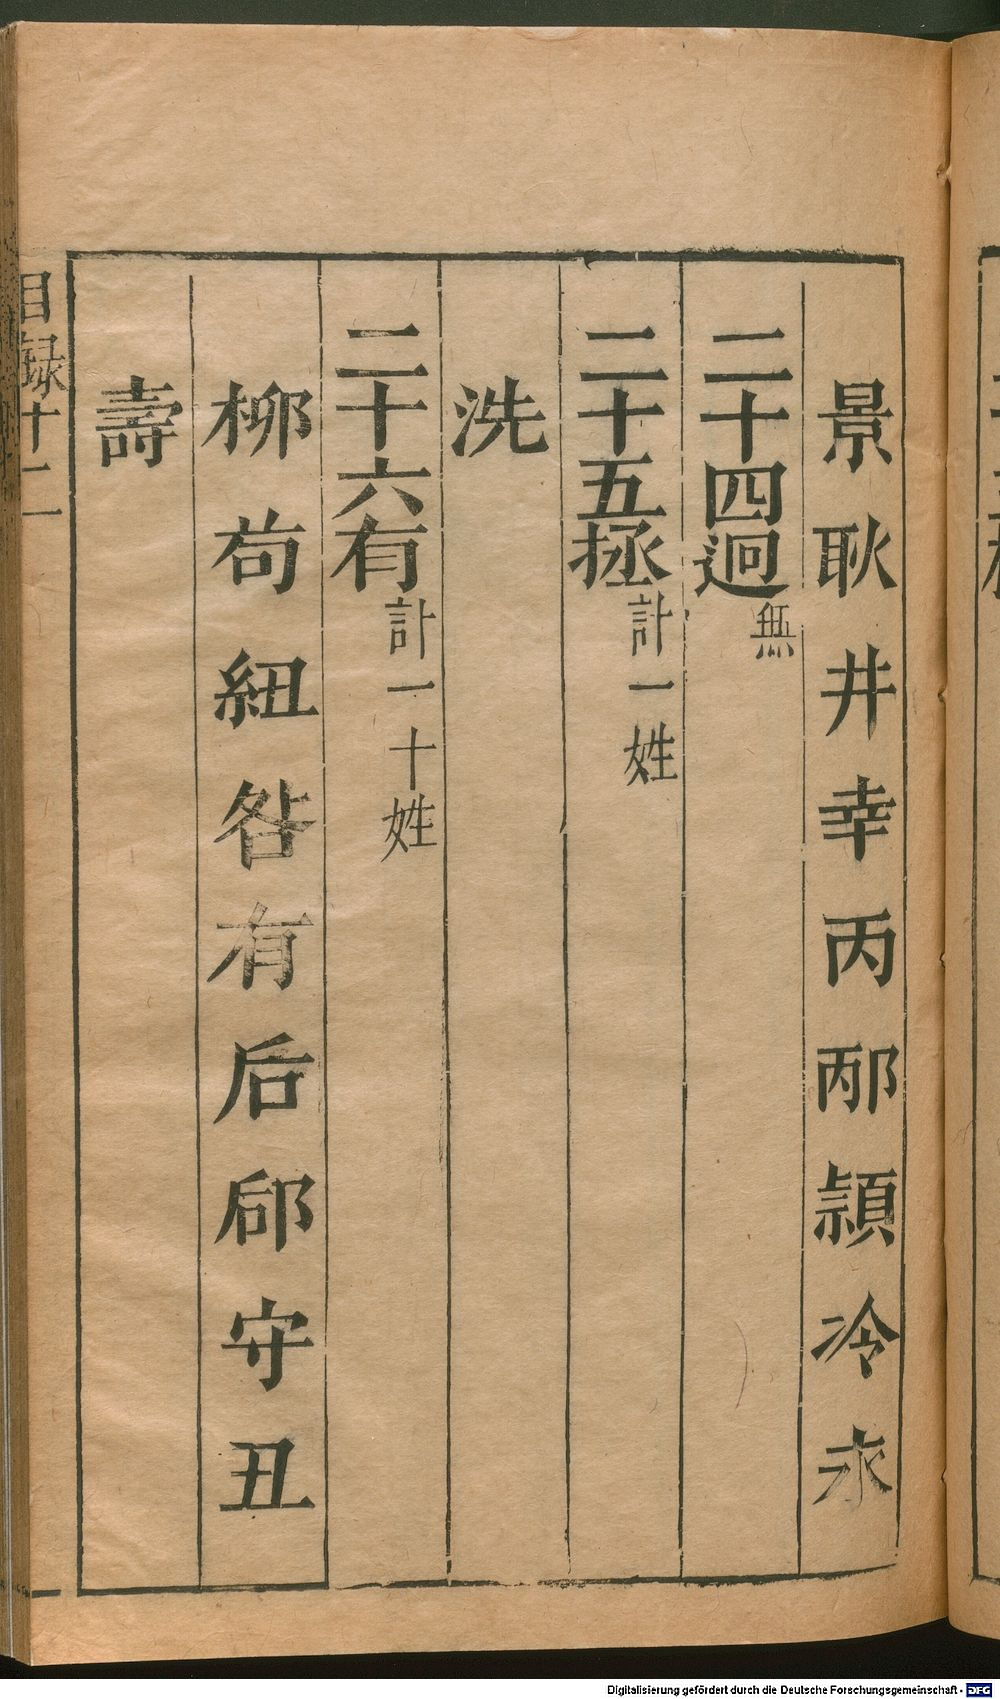 景耿井幸丙邴潁冷永
二十四迥無
二十五拯計一姓
洗
二十六有計一十姓
柳苟紐咎有后郈守丑
壽
目録十二
Digitalisierung gefördert durch die Deutsche Forschungsgemeinschaft - DFG